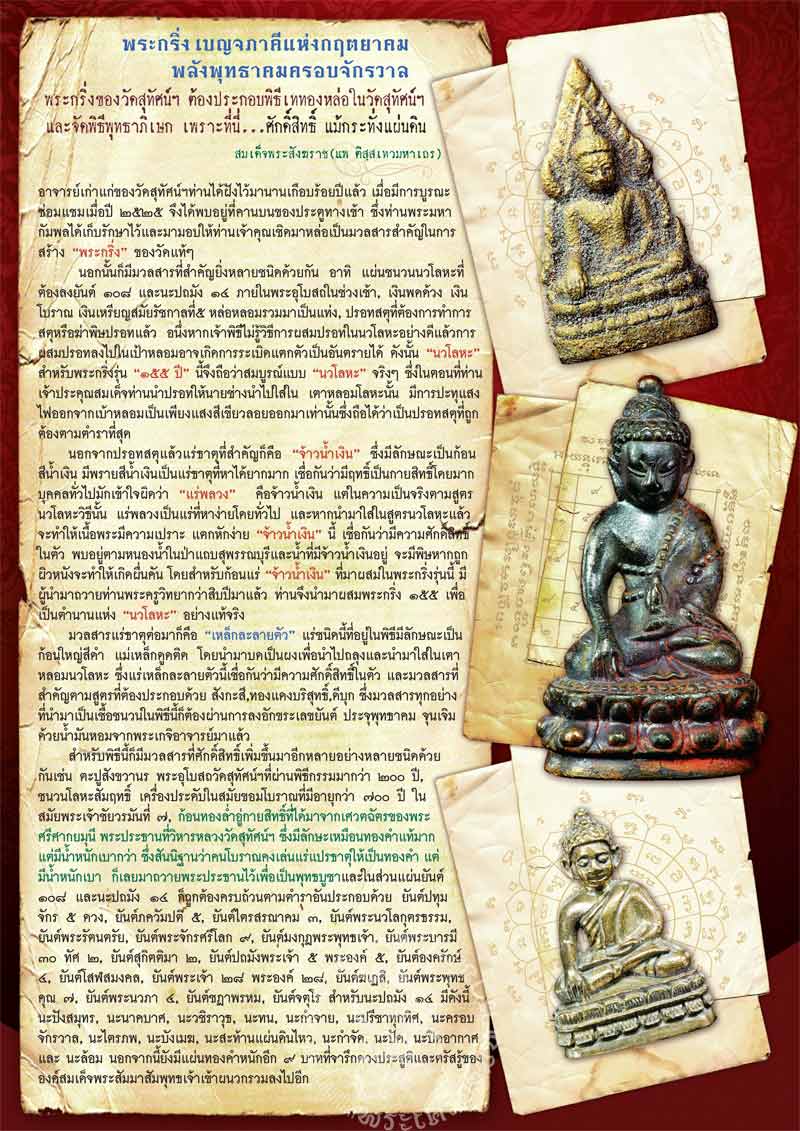 พระกริ่ง เบญจภาคีแห่งกฤตยาคม
พลังพุทธาคมครอบจักรวาล
พระกริ่งของวัดสุทัศน์ฯ ต้องประกอบพิธีเททองหล่อในวัดสุทัศน์ฯ
และจัดพิธีพุทธาภิเษก เพราะที่นี่...ศักดิ์สิทธิ์ แม้กระทั่งแผ่นดิน
สมเด็จพระสังฆราช(แพ ติสฺสเทวมหาเถร)
อาจารย์เก่าแก่ของวัดสุทัศน์ฯท่านได้ฝังไว้มานานเกือบร้อยปีแล้ว เมื่อมีการบูรณะ
ซ่อมแซมเมื่อปี ๒๕๒๕ จึงได้พบอยู่ที่คานบนของประตูทางเข้า ซึ่งท่านพระมหา
กัมพลได้เก็บรักษาไว้และมามอบให้ท่านเจ้าคุณเชิดมาหล่อเป็นมวลสารสำคัญในการ
สร้าง “พระกริ่ง” ของวัดแท้ๆ
นอกนั้นก็มีมวลสารที่สำคัญยิ่งหลายชนิดด้วยกัน อาทิ แผ่นชนวนนวโลหะที่
ต้องลงยันต์ ๑๐๘ และนะปถมัง ๑๔ ภายในพระอุโบสถในช่วงเช้า, เงินพดด้วง เงิน
โบราณ เงินเหรียญสมัยรัชกาลที่๕ หล่อหลอมรวมมาเป็นแท่ง, ปรอทสตุที่ต้องการทำการ
สตุหรือฆ่าพิษปรอทแล้ว อนึ่งหากเจ้าพิธีไม่รู้วิธีการผสมปรอทในนวโลหะอย่างดีแล้วการ
ผสมปรอทลงไปในเป้าหลอมอาจเกิดการระเบิดแตกตัวเป็นอันตรายได้ ดังนั้น “นวโลหะ”
สำหรับพระกริ่งรุ่น “๑๕๕ ปี” นี้จึงถือว่าสมบูรณ์แบบ “นวโลหะ” จริงๆ ซึ่งในตอนที่ท่าน
เจ้าประคุณสมเด็จท่านนำปรอทให้นายช่างนำไปใส่ใน เตาหลอมโลหะนั้น มีการปะทุแสง
ไฟออกจากเบ้าหลอมเป็นเพียงแสงสีเขียวลอยออกมาเท่านั้นซึ่งถือได้ว่าเป็นปรอทสตุที่ถูก
ต้องตามตำราที่สุด
นอกจากปรอทสตุแล้วแร่ธาตุที่สำคัญก็คือ “จ้าวน้ำเงิน” ซึ่งมีลักษณะเป็นก้อน
สีน้ำเงิน มีพรายสีน้ำเงินเป็นแร่ธาตุที่หาได้ยากมาก เชื่อกันว่ามีฤทธิ์เป็นกายสิทธิ์โดยมาก
บุคคลทั่วไปมักเข้าใจผิดว่า “แร่พลวง” คือจ้าวน้ำเงิน แต่ในความเป็นจริงตามสูตร
นวโลหะวิธีนั้น แร่พลวงเป็นแร่ที่หาง่ายโดยทั่วไป และหากนำมาใส่ในสูตรนวโลหะแล้ว
จะทำให้เนื้อพระมีความเปราะ แตกหักง่าย “จ้าวน้ำเงิน” นี้ เชื่อกันว่ามีความศักดิ์สิทธิ์
ในตัว พบอยู่ตามหนองน้ำในป่าแถบสุพรรณบุรีและน้ำที่มีจ้าวน้ำเงินอยู่ จะมีพิษหากถูก
ผิวหนังจะทำให้เกิดผื่นคัน โดยสำหรับก้อนแร่ “จ้าวน้ำเงิน” ที่มาผสมในพระกริ่งรุ่นนี้ มี
ผู้นำมาถวายท่านพระครูวิทยากว่าสิบปีมาแล้ว ท่านจึงนำมาผสมพระกริ่ง ๑๕๕ เพื่อ
เป็นตำนานแห่ง “นวโลหะ” อย่างแท้จริง
มวลสารแร่ธาตุต่อมาก็คือ “เหล็กละลายตัว” แร่ชนิดนี้ที่อยู่ในพิธีมีลักษณะเป็น
ก้อนใหญ่สีดำ แม่เหล็กดูดติด โดยนำมาบดเป็นผงเพื่อนำไปถลุงและนำมาใส่ในเตา
หลอมนวโลหะ ซึ่งแร่เหล็กละลายตัวนี้เชื่อกันว่ามีความศักดิ์สิทธิ์ในตัว และมวลสารที่
สำคัญตามสูตรที่ต้องประกอบด้วย สังกะสี,ทองแดงบริสุทธิ์,ดีบุก ซึ่งมวลสารทุกอย่าง
ที่นำมาเป็นเชื้อชนวนในพิธีนี้ก็ต้องผ่านการลงอักขระเลขยันต์ ประจุพุทธาคม จุนเจิม
ด้วยน้ำมันหอมจากพระเกจิอาจารย์มาแล้ว
สำหรับพิธีนี้ก็มีมวลสารที่ศักดิ์สิทธิ์เพิ่มขึ้นมาอีกหลายอย่างหลายชนิดด้วย
กันเช่น ตะปูสังขวานร พระอุโบสถวัดสุทัศน์ฯที่ผ่านพิธีกรรมมากว่า ๒๐๐ ปี,
ชนวนโลหะสัมฤทธิ์ เครื่องประดับในสมัยขอมโบราณที่มีอายุกว่า ๗๐๐ ปี ใน
สมัยพระเจ้าชัยวรมันที่ ๗, ก้อนทองล่ำอู่กายสิทธิ์ที่ได้มาจากเศวตฉัตรของพระ
ศรีศากยมุนี พระประธานที่วิหารหลวงวัดสุทัศน์ฯ ซึ่งมีลักษะเหมือนทองคำแท้มาก
แต่มีน้ำหนักเบากว่า ซึ่งสันนิฐานว่าคนโบราณคงเล่นแร่แปรธาตุให้เป็นทองคำ แต่
มีน้ำหนักเบา ก็เลยมาถวายพระประธานไว้เพื่อเป็นพุทธบูชาและในส่วนแผ่นยันต์
๑๐๘ และนะปถมัง ๑๔ ก็ถูกต้องครบถ้วนตามตำราอันประกอบด้วย ยันต์ปทุม
จักร ๕ ดวง, ยันต์ภควัมปติ ๕, ยันต์ไตรสรณาคม ๓, ยันต์พระนวโลกุตรธรรม,
ยันต์พระรัตนตรัย, ยันต์พระจักรศรีโลก ๙, ยันต์มงกุฎพระพุทธเจ้า, ยันต์พระบารมี
๓๐ ทัศ ๒, ยันต์สุกิตติมา ๒, ยันต์ปถมังพระเจ้า ๕ พระองค์ ๕, ยันต์องครักษ์
๔, ยันต์โสฬสมงคล, ยันต์พระเจ้า ๒๘ พระองค์ ๒๘, ยันต์ฆเฏสิ, ยันต์พระพุทธ
คุณ ๗, ยันต์พระนวภา ๔, ยันต์ชฏาพรหม, ยันต์จตุโร สำหรับนะปถมัง ๑๔ มีดังนี้
นะปังสมุทร, นะนาคบาศ, นะวชิราวุธ, นะทน, นะกำจาย, นะปรีชาทุกทิศ, นะครอบ
จักรวาล, นะไตรภพ, นะบังเมฆ, นะสะท้านแผ่นดินไหว, นะกำจัด, นะปัด, นะปิดอากาศ
และ นะล้อม นอกจากนี้ยังมีแผ่นทองคำหนักอีก ๙ บาทที่จารึกดวงประสูติและตรัสรู้ของ
องค์สมเด็จพระสัมมาสัมพุทธเจ้าเข้าผนวกรวมลงไปอีก